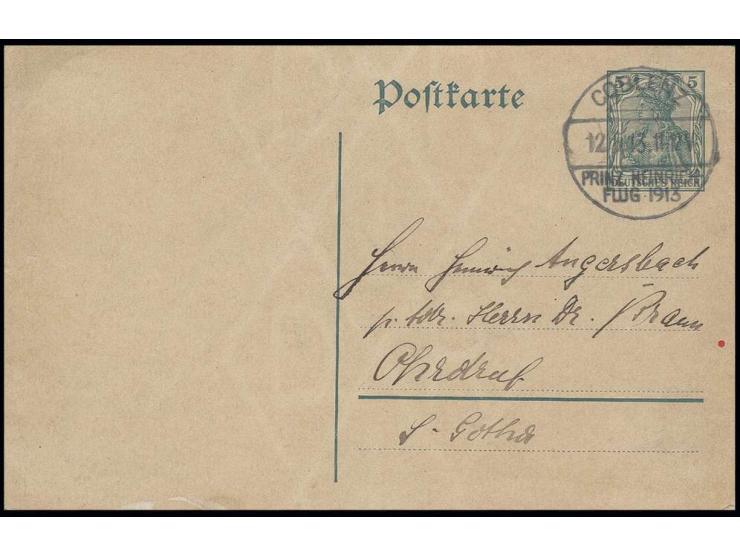 Postkarte
5 5
DEUTSCHES REICH
COBLENZ
12. 13. 11-12V
PRINZ HEINRICH
FLUG 1913
Herrn Heinrich Angersbach
p. Adr. Herrn Dr. Braun
Ohrdruf
S. Gotha